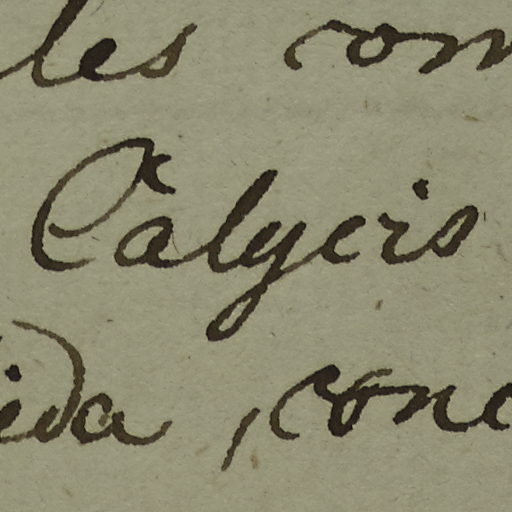 les com
Calycis
ida, conc